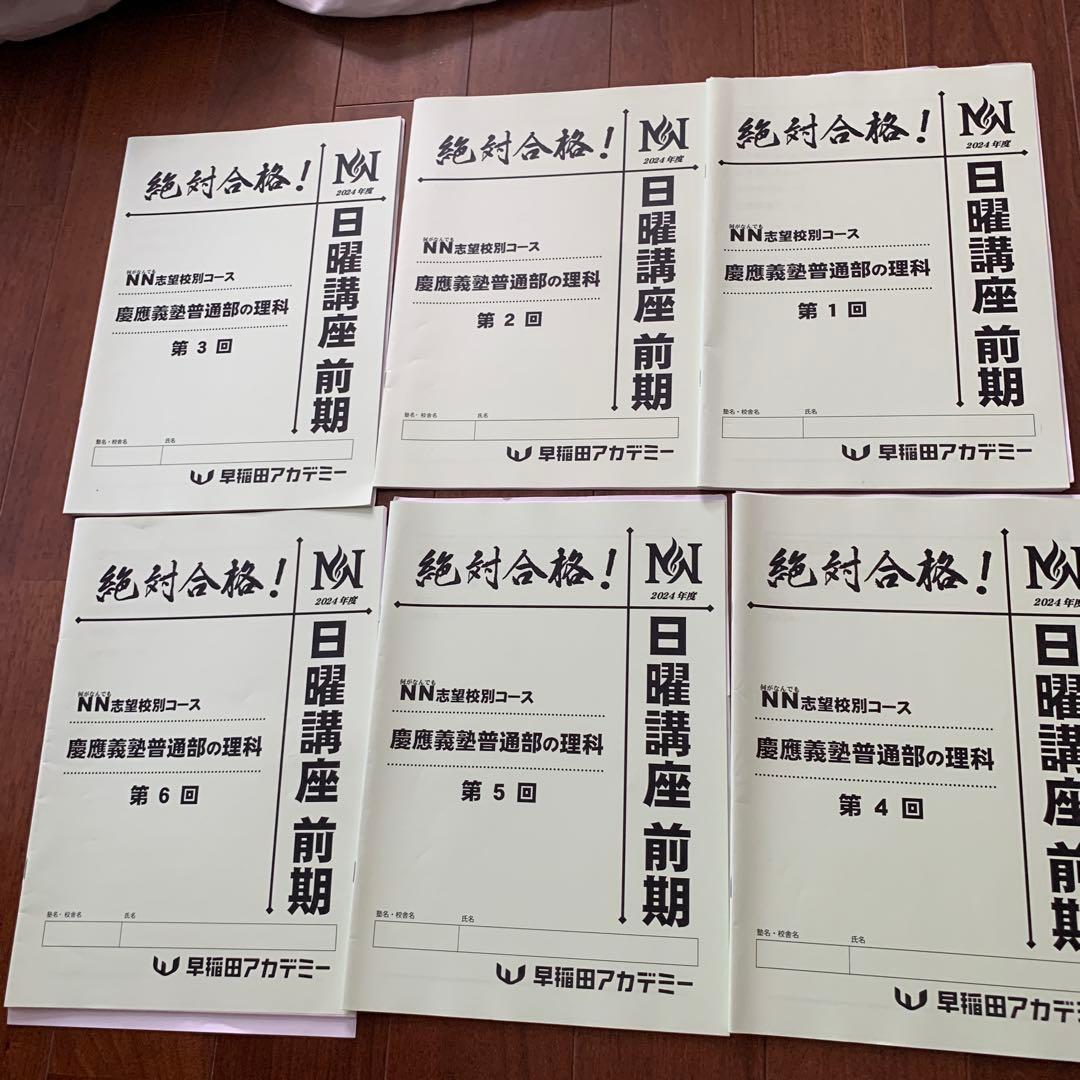 絶対合格！
NN
2024年度
日曜講座 前期
何がなんでも
NN志望校別コース
慶應義塾普通部の理科
第3回
塾名・校舎名
氏名
早稲田アカデミー
絶対合格！
NN
2024年度
日曜講座 前期
何がなんでも
NN志望校別コース
慶應義塾普通部の理科
第2回
塾名・校舎名
氏名
早稲田アカデミー
絶対合格！
NN
2024年度
日曜講座 前期
何がなんでも
NN志望校別コース
慶應義塾普通部の理科
第1回
塾名・校舎名
氏名
早稲田アカデミー
絶対合格！
NN
2024年度
日曜講座 前期
何がなんでも
NN志望校別コース
慶應義塾普通部の理科
第6回
塾名・校舎名
氏名
早稲田アカデミー
絶対合格！
NN
2024年度
日曜講座 前期
何がなんでも
NN志望校別コース
慶應義塾普通部の理科
第5回
塾名・校舎名
氏名
早稲田アカデミー
絶対合格！
NN
2024年度
日曜講座 前期
何がなんでも
NN志望校別コース
慶應義塾普通部の理科
第4回
塾名・校舎名
氏名
早稲田アカデ